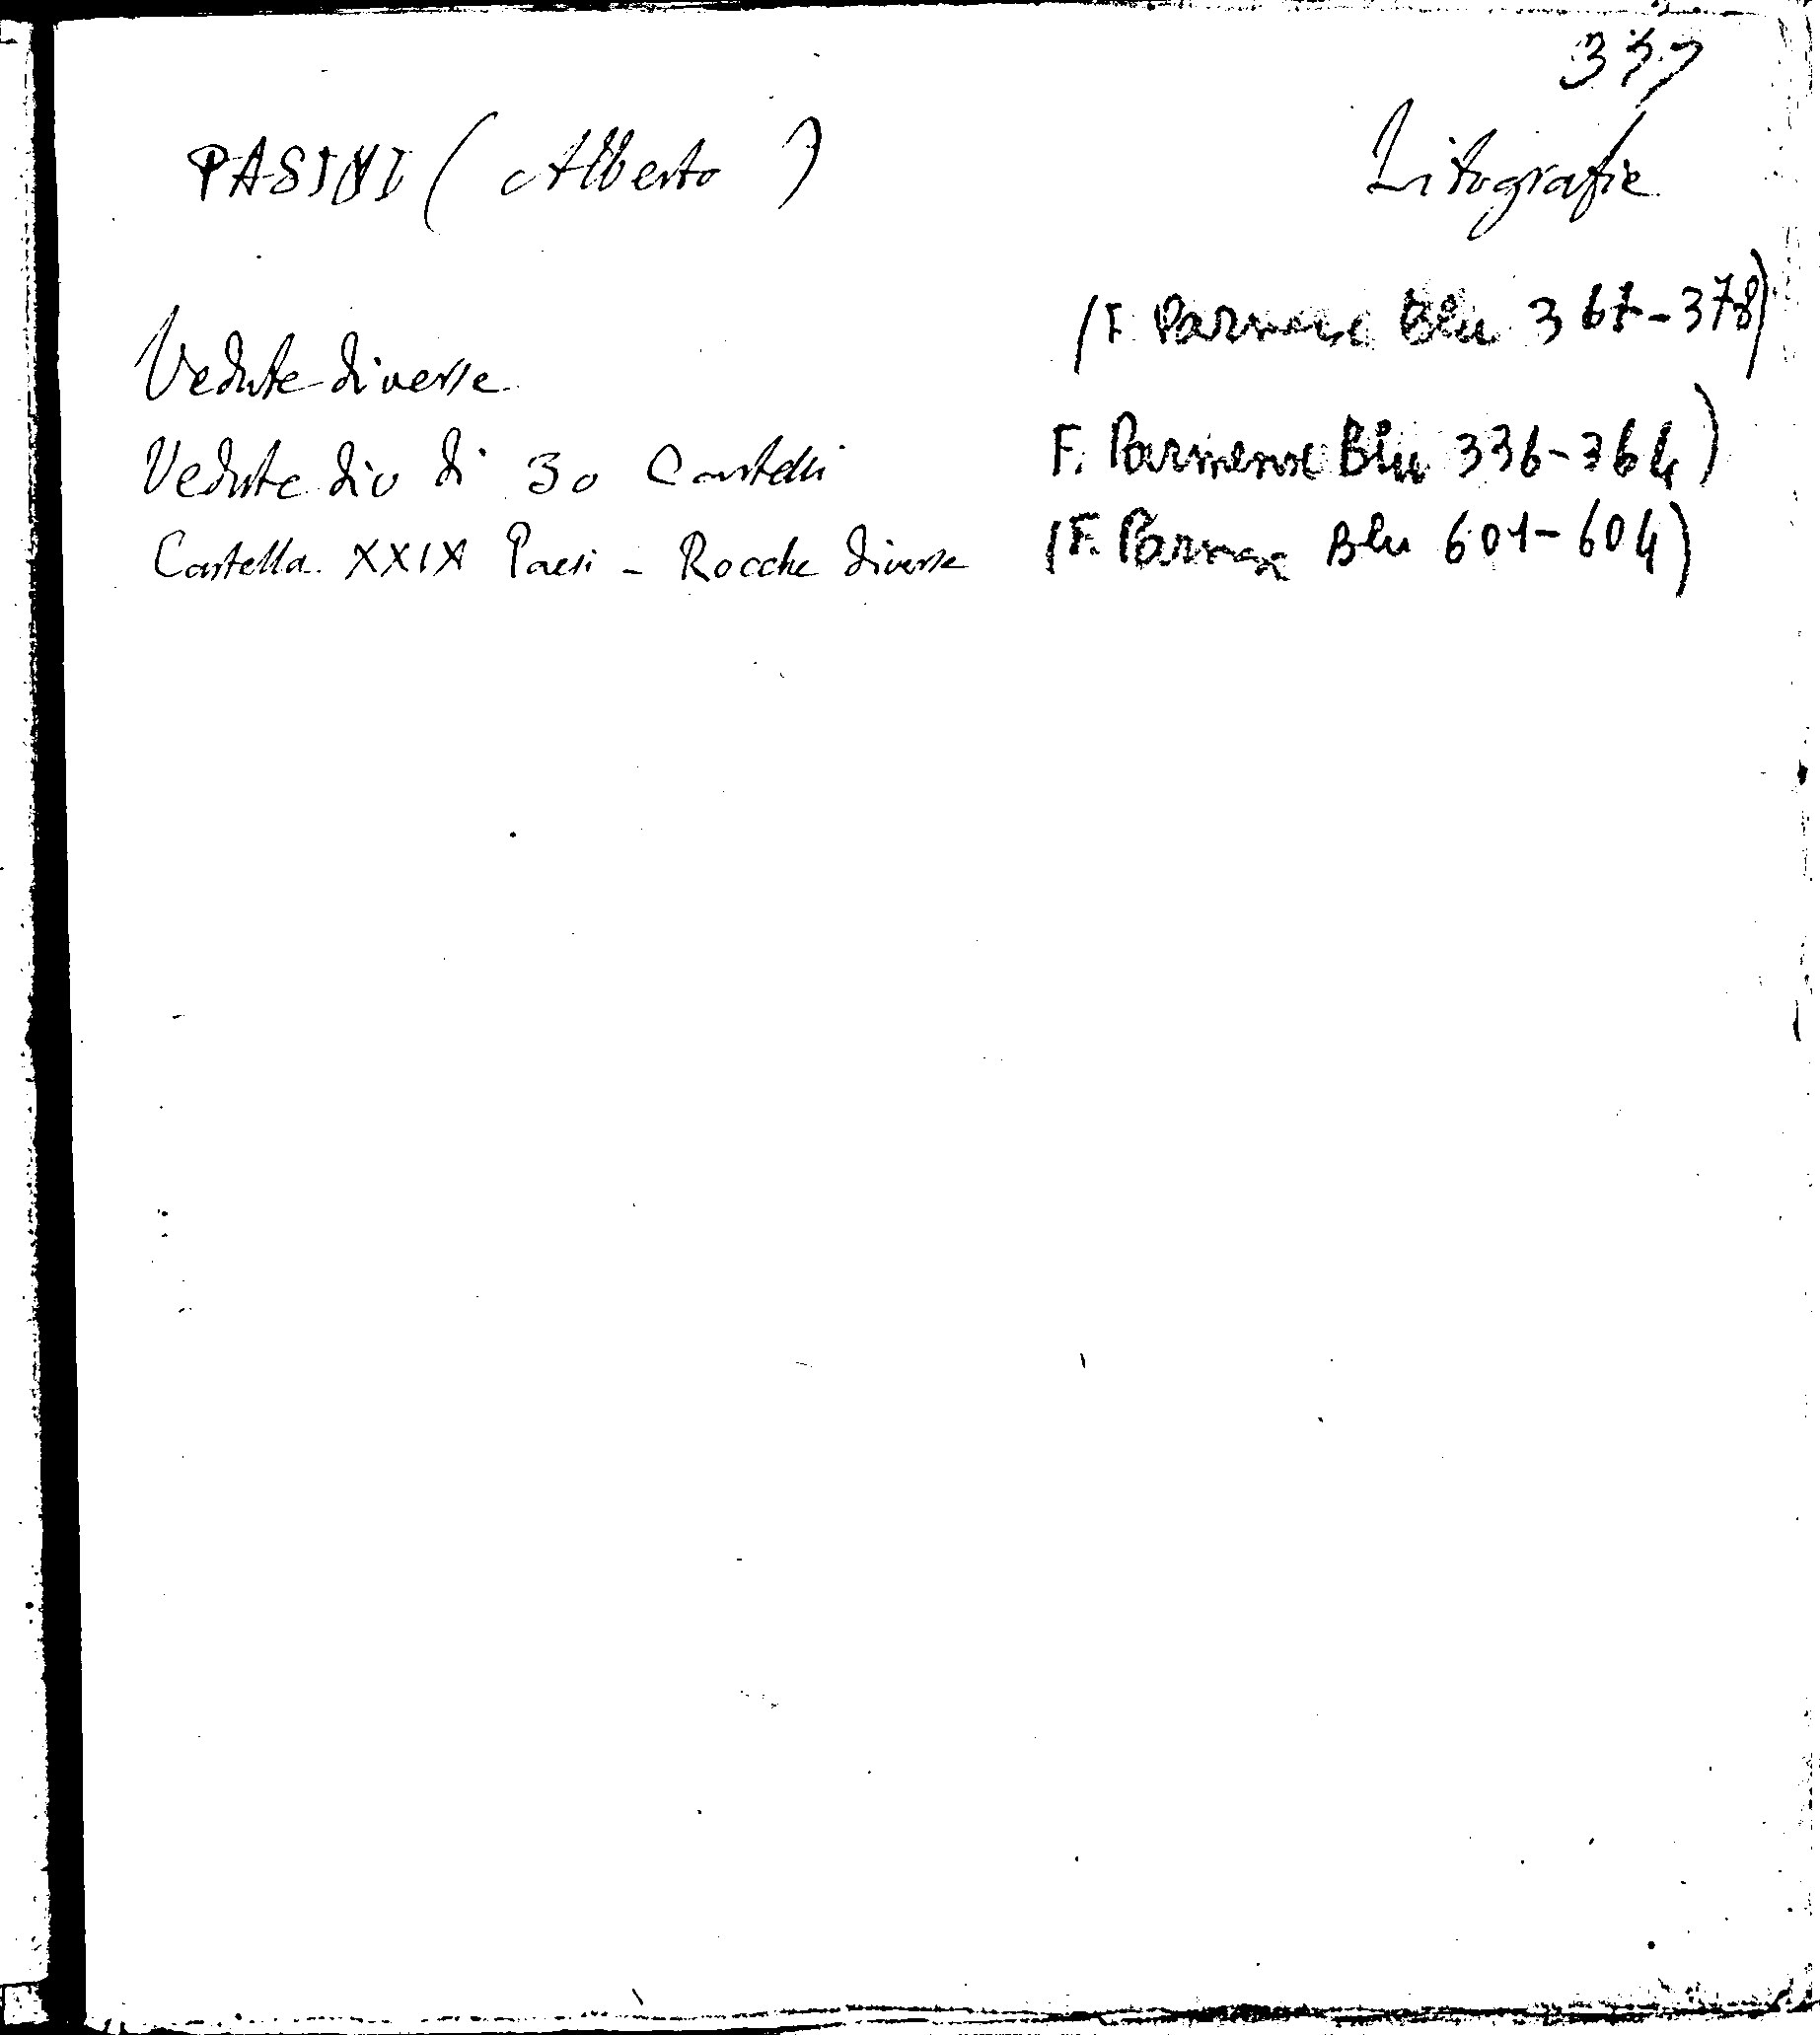 337
PASINI (Alberto) Litografie
Vedute diverse (F. Parmense Blu 367-378)
Vedute div di 30 Castelli F. Parmense Blu 336-364)
Cartella XXIX Paesi - Rocche diverse (F. Parmense Blu 601-604)